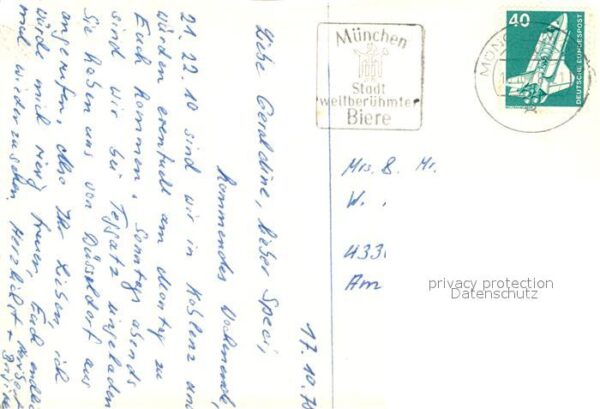 17.10.76
Liebe Geraldine, lieber Speci,
kommendes Wochenende,
21.22.10 sind wir in Koblenz und
würden eventuell am Montag zu
Euch kommen. Sonntag abends
sind wir bei eingeladen
Sie haben uns von Düsseldorf aus
angerufen. Also Ihr Lieben, ich
würde mich riesig freuen, Euch endlich
mal wiederzusehen. Herzlichst
München
Stadt
weltberühmter
Biere
40
DEUTSCHE BUNDESPOST
Mrs. & Mr.
W.
433
Am
privacy protection
Datenschutz